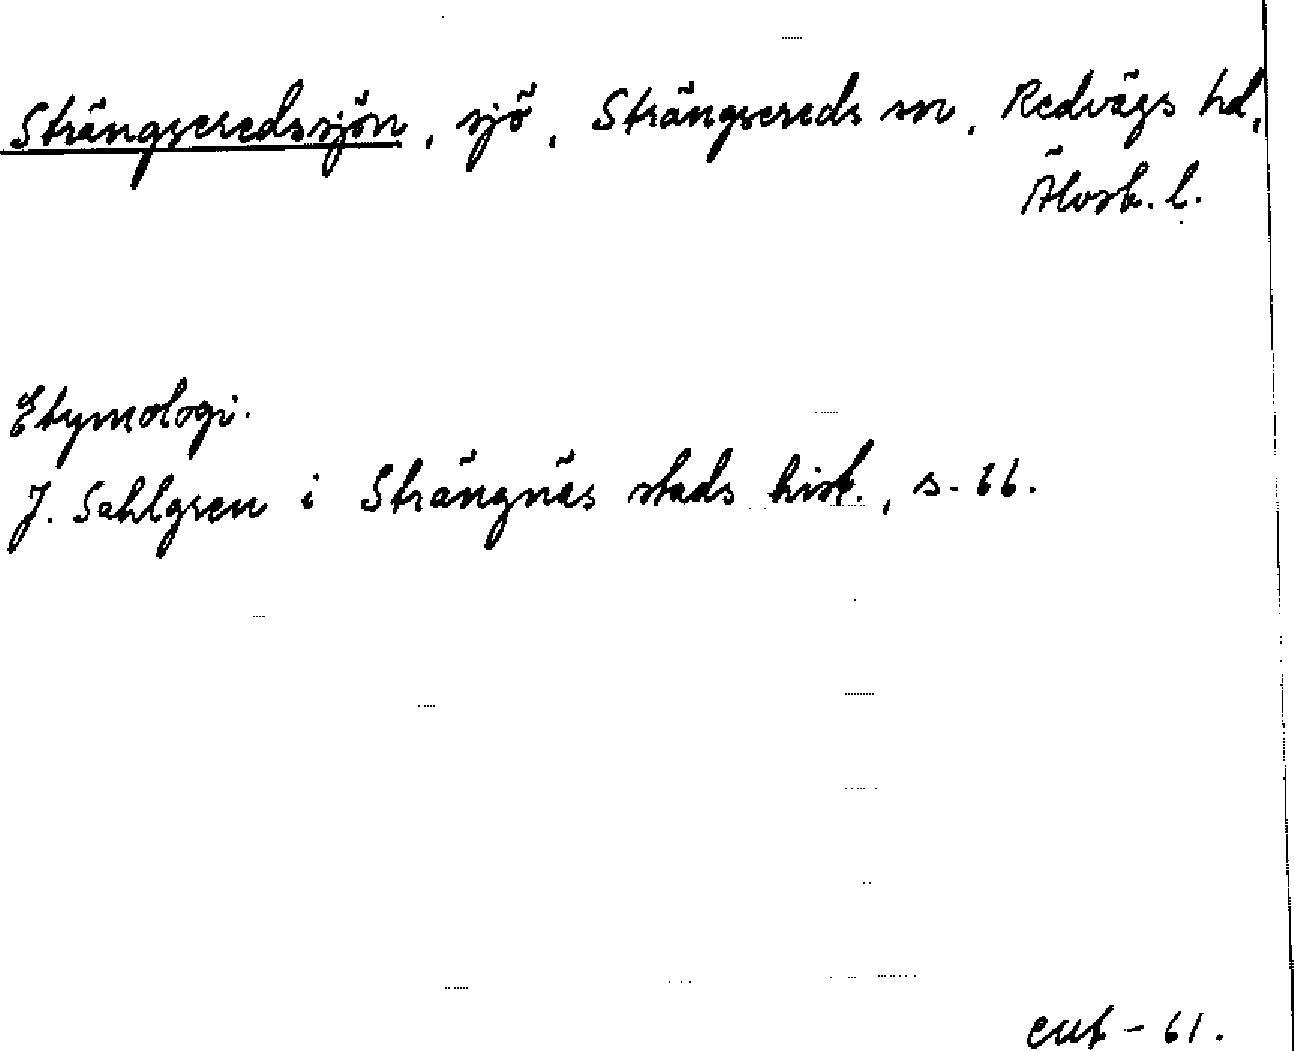 Strängseredssjön, sjö, Strängsereds sn, Redvägs hd,
Älvsb. l.
Etymologi.
J. Sahlgren i Strängnäs stads hist., s. 66.
- 61.